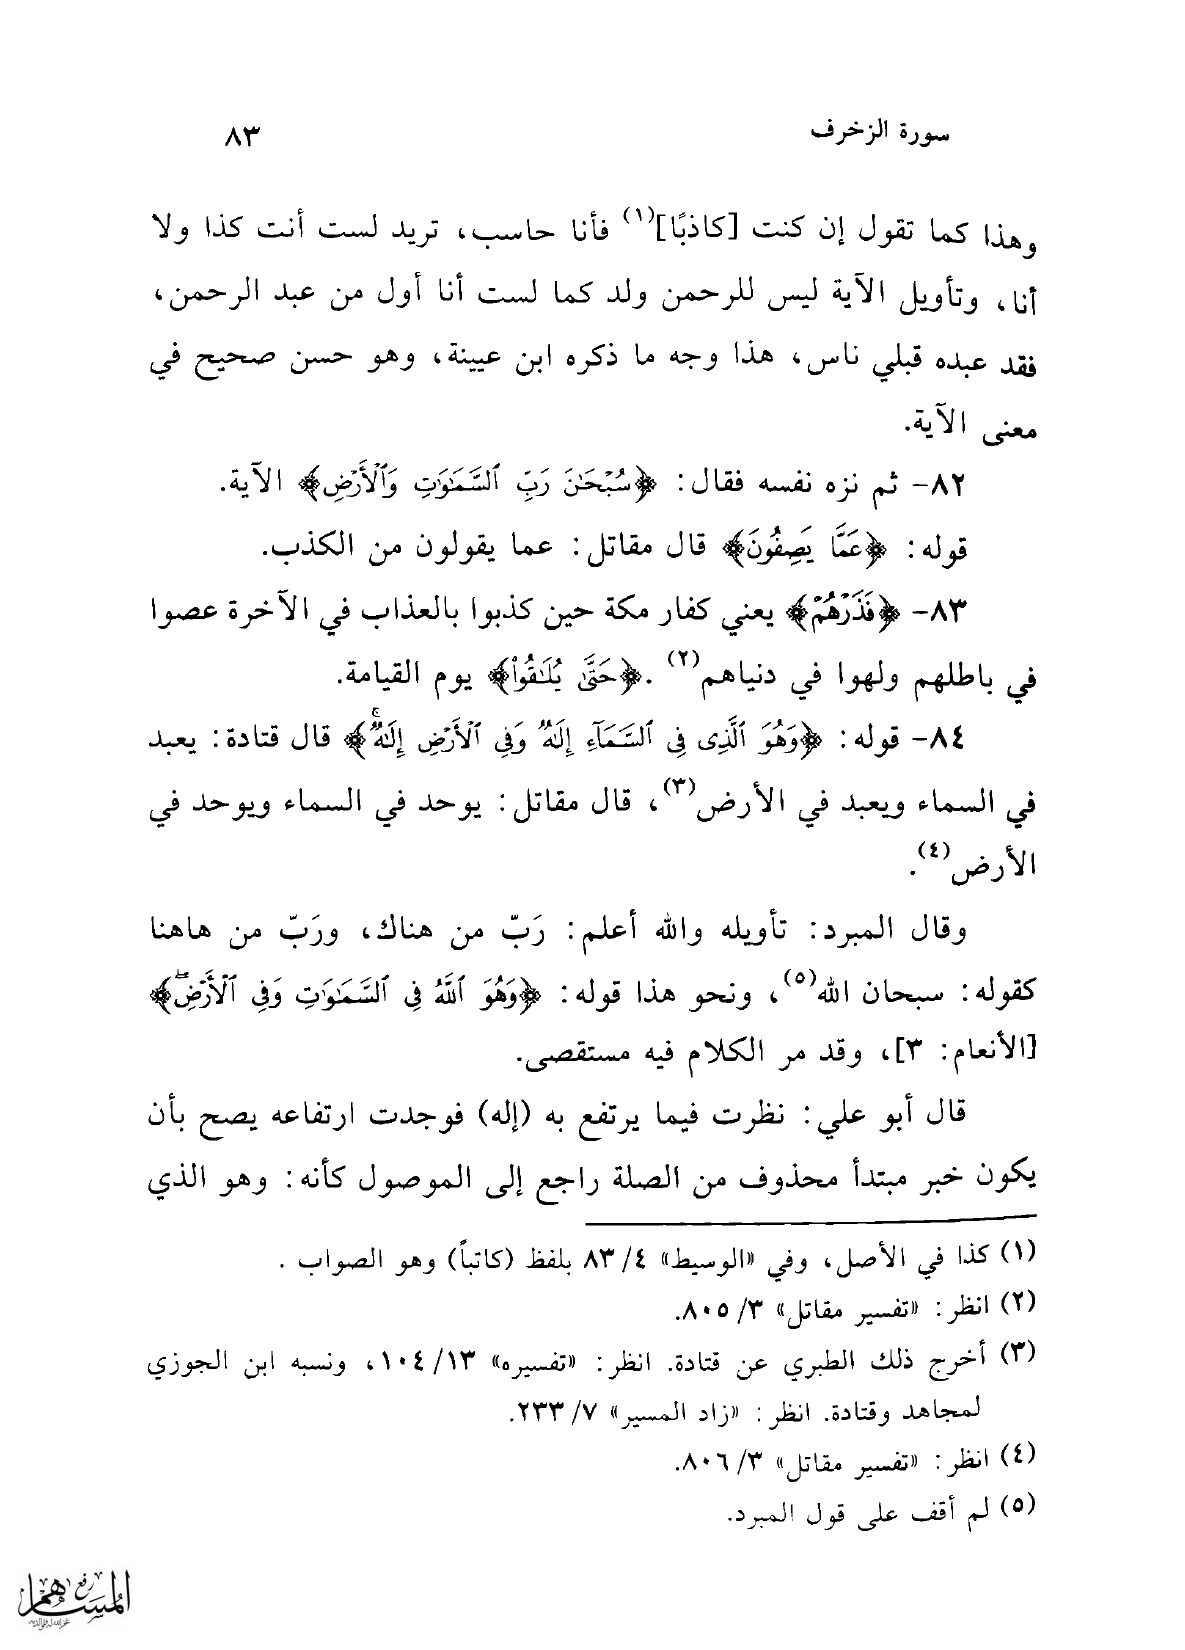 سورة الزخرف ٨٣
وهذا كما تقول إن كنت [كاذبًا](١) فأنا حاسب، تريد لست أنت كذا ولا
أنا، وتأويل الآية ليس للرحمن ولد كما لست أنا أول من عبد الرحمن،
فقد عبده قبلي ناس، هذا وجه ما ذكره ابن عيينة، وهو حسن صحيح في
معنى الآية.
٨٢- ثم نزه نفسه فقال: ﴿سُبْحَٰنَ رَبِّ ٱلسَّمَٰوَٰتِ وَٱلْأَرْضِ﴾ الآية.
قوله: ﴿عَمَّا يَصِفُونَ﴾ قال مقاتل: عما يقولون من الكذب.
٨٣- ﴿فَذَرْهُمْ﴾ يعني كفار مكة حين كذبوا بالعذاب في الآخرة عصوا
في باطلهم ولهوا في دنياهم(٢). ﴿حَتَّىٰ يُلَٰقُوا۟﴾ يوم القيامة.
٨٤- قوله: ﴿وَهُوَ ٱلَّذِى فِى ٱلسَّمَآءِ إِلَٰهٌ وَفِى ٱلْأَرْضِ إِلَٰهٌ ۚ﴾ قال قتادة: يعبد
في السماء ويعبد في الأرض(٣)، قال مقاتل: يوحد في السماء ويوحد في
الأرض(٤).
وقال المبرد: تأويله والله أعلم: رَبّ من هناك، ورَبّ من هاهنا
كقوله: سبحان الله(٥)، ونحو هذا قوله: ﴿وَهُوَ ٱللَّهُ فِى ٱلسَّمَٰوَٰتِ وَفِى ٱلْأَرْضِ ۖ﴾
[الأنعام: ٣]، وقد مر الكلام فيه مستقصى.
قال أبو علي: نظرت فيما يرتفع به (إله) فوجدت ارتفاعه يصح بأن
يكون خبر مبتدأ محذوف من الصلة راجع إلى الموصول كأنه: وهو الذي
(١) كذا في الأصل، وفي «الوسيط» ٤/ ٨٣ بلفظ (كاتباً) وهو الصواب .
(٢) انظر: «تفسير مقاتل» ٣/ ٨٠٥.
(٣) أخرج ذلك الطبري عن قتادة. انظر: «تفسيره» ١٣/ ١٠٤، ونسبه ابن الجوزي
لمجاهد وقتادة. انظر: «زاد المسير» ٧/ ٢٣٣.
(٤) انظر: «تفسير مقاتل» ٣/ ٨٠٦.
(٥) لم أقف على قول المبرد.